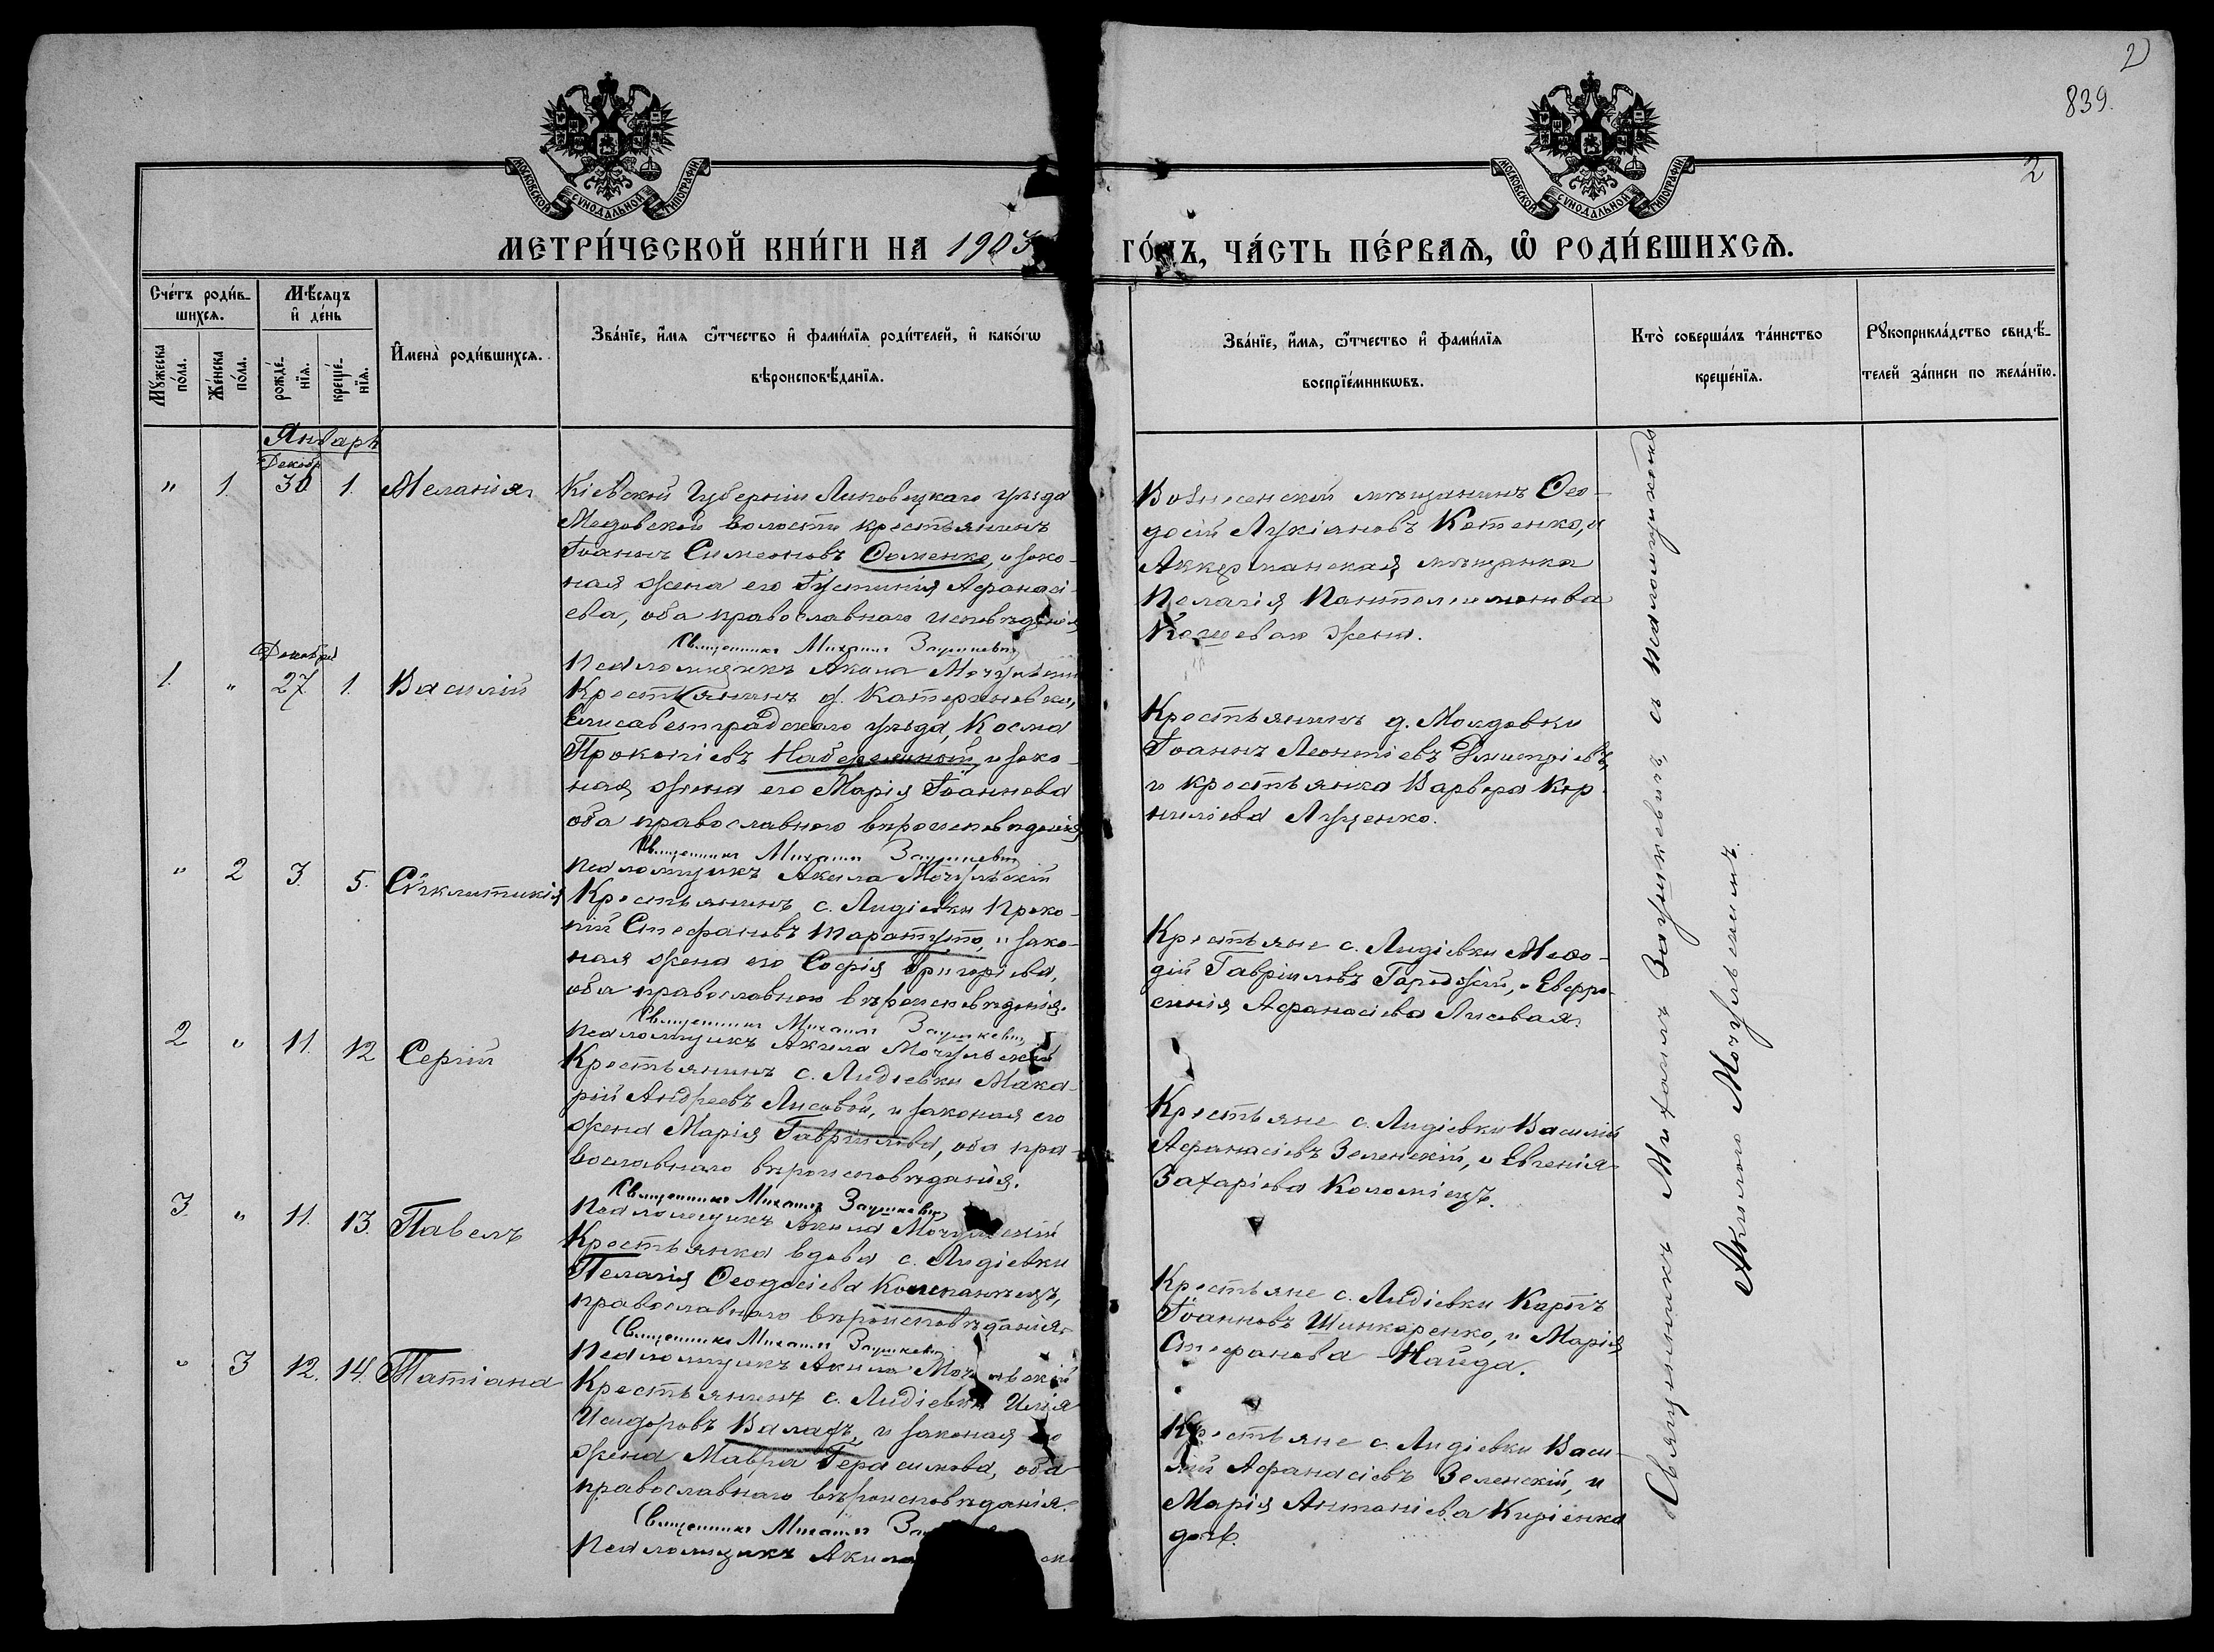 2
839.
2
МОСКОВСКОЙ СѴНОДАЛЬНОЙ ТИПОГРАФІИ
МОСКОВСКОЙ СѴНОДАЛЬНОЙ ТИПОГРАФІИ
МЕТРИ́ЧЕСКОЙ КНИ́ГИ НА 1903 ГО́ДЪ, ЧА́СТЬ ПЕ́РВАѦ, Ѡ҆ РОДИ́ВШИХСѦ.
Сче́тъ роди́в-
шихсѧ.
Мѣ́сѧцъ
и҆ де́нь
Мꙋ́жеска
по́ла.
Же́нска
по́ла.
рожде́-
нїѧ.
креще́-
нїѧ.
И҆мена̀ роди́вшихсѧ.
Зва́нїе, и҆́мѧ ѻ҆́тчество и҆ фами́лїѧ роди́телей, и҆ како́гѡ
вѣроисповѣ́данїѧ.
Зва́нїе, и҆́мѧ, ѻ҆́тчество и҆ фами́лїѧ
воспрїе́мникѡвъ.
Кто̀ соверша́лъ та́инство
креще́нїѧ.
Рꙋкоприкла́дство свидѣ́-
телей за́писи по жела́нїю.
Январь
Декабр
" 1. 30 1. Меланія
Кіевской Губерніи Липовецкаго уѣзда
Медовской волости крестьянинъ
Іоаннъ Симеоновъ Ѳоменко, и зако-
ная жена его Іустинія Аѳанасі-
ева, оба православнаго исповѣданія
Священникъ Михаилъ
Псаломщикъ Акила Мочульскій
Вознесенскій мѣщанинъ Ѳео-
досій Лукіановъ Котенко, и
Аккерманская мѣщанка
Пелагія Пантелеимонова
жена.
Декабря
1. " 27. 1. Василій
Крестьянинъ д. Катериновки,
Елисаветградскаго уѣзда, Косма
Прокопіевъ и зако-
ная жена его Марія Іоаннова
оба православнаго вѣроисповѣданія
Священникъ Михаилъ
Псаломщикъ Акила Мочульскій
Крестьянинъ д. Молдовки
Іоаннъ Леонтіевъ Димитріевъ,
и крестьянка Варвара Кор-
ниліева Луценко.
" 2 3. 5. Сѵнклитикія
Крестьянинъ с. Лидіевки Проко-
пій Стефановъ Шарапутю, и зако-
ная жена его Софія Григоріева,
оба православного вѣроисповѣданія.
Священникъ Михаилъ
Псаломщикъ Акила Мочульскій
Крестьяне с. Лидіевки Меѳо-
дій Гавріиловъ и Евфро-
синія Аѳанасіева Лисовая.
2 " 11. 12 Сергій
Крестьянинъ с. Лидіевки Мака-
рій Андреевъ Лисовой, и законая его
жена Марія Гавріилова, оба пра-
вославнаго вѣроисповѣданія.
Священникъ Михаилъ
Псаломщикъ Акила Мочульскій
Крестьяне с. Лидіевки Василій
Аѳанасіевъ Зеленскій, и Евгенія
Захаріева Коломіецъ.
3 " 11. 13. Павелъ
Крестьянка вдова с. Лидіевки
Пелагія Ѳеодосіева
православнаго вѣроисповѣданія
Священникъ Михаилъ
Псаломщикъ Акила
Крестьяне с. Лидіевки Карпъ
Іоанновъ Шинкаренко, и Марія
Стефанова Найда.
" 3 12. 14. Татіана
Крестьянинъ с. Лидіевки Илія
Исидоровъ и законая его
жена Мавра Герасимова, оба
православнаго вѣроисповѣданія.
Священникъ Михаилъ
Псаломщикъ Акила
Крестьяне с. Лидіевки Васи-
лій Аѳанасіевъ Зеленскій, и
Марія Антоніева Киріенко
дочь.
Священникъ Михаилъ съ псаломщикомъ
Акилою Мочульскимъ.